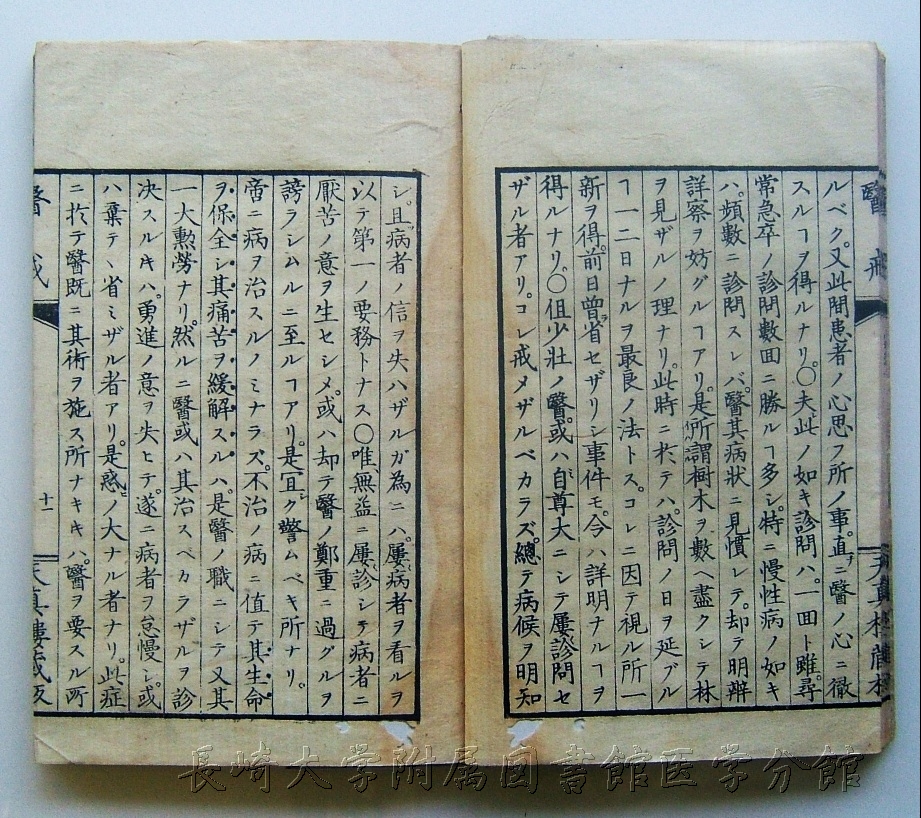 ルベク。又此間患者ノ心思フ所ノ事。直ニ醫ノ心ニ徹
スルヿヲ得ルナリ。〇夫此ノ如キ診問ハ。一回ト雖。尋
常急卒ノ診問數回ニ勝ルヿ多シ。特ニ慢性病ノ如キ
ハ。頻數ニ診問スレバ。醫其病狀ニ見慣レテ。却テ明辨
詳察ヲ妨グルヿアリ。是所謂樹木ヲ數ヘ盡クシテ林
ヲ見ザルノ理ナリ。此時ニ於テハ。診問ノ日ヲ延ブル
ヿ一二日ナルヲ最良ノ法トス。コレニ因テ視ル所一
新ヲ得。前日曾省セザリシ事件モ。今ハ詳明ナルヿヲ
得ルナリ。〇但少壯ノ醫。或ハ自尊大ニシテ屢診問セ
ザル者アリ。コレ戒メザルベカラズ。總テ病候ヲ明知
醫戒
天眞樓藏板
シ。且病者ノ信ヲ失ハザルガ為ニハ。屢病者ヲ看ルヲ
以テ第一ノ要務トナス〇唯無益ニ屢診シテ病者ニ
厭苦ノ意ヲ生セシメ。或ハ却テ醫ノ鄭重ニ過グルヲ
謗ラシムルニ至ルヿアリ。是宜ク警ムベキ所ナリ。
啻ニ病ヲ治スルノミナラズ。不治ノ病ニ値テ其生命
ヲ保全シ其痛苦ヲ緩解スルハ。是醫ノ職ニシテ又其
一大勲勞ナリ。然ルニ醫或ハ其治スベカラザルヲ診
决スルキハ。勇進ノ意ヲ失ヒテ。遂ニ病者ヲ怠慢シ。或
ハ棄テヽ省ミザル者アリ。是惑ノ大ナル者ナリ。此症
ニ於テ醫既ニ其術ヲ施ス所ナキキハ。醫ヲ要スル所
醫戒
十一
天眞樓藏板
長崎大学附属図書館医学分館